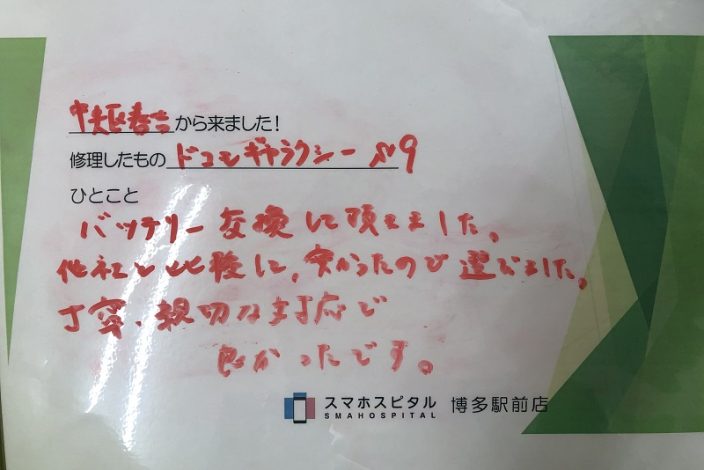 中央区春吉から来ました!
修理したもの ドコモギャラクシー S9
ひとこと
バッテリー交換して頂きました。
他社と比較し、安かったので選びました。
丁寧、親切な対応で
良かったです。
スマホスピタル 博多駅前店
SMAHOSPITAL